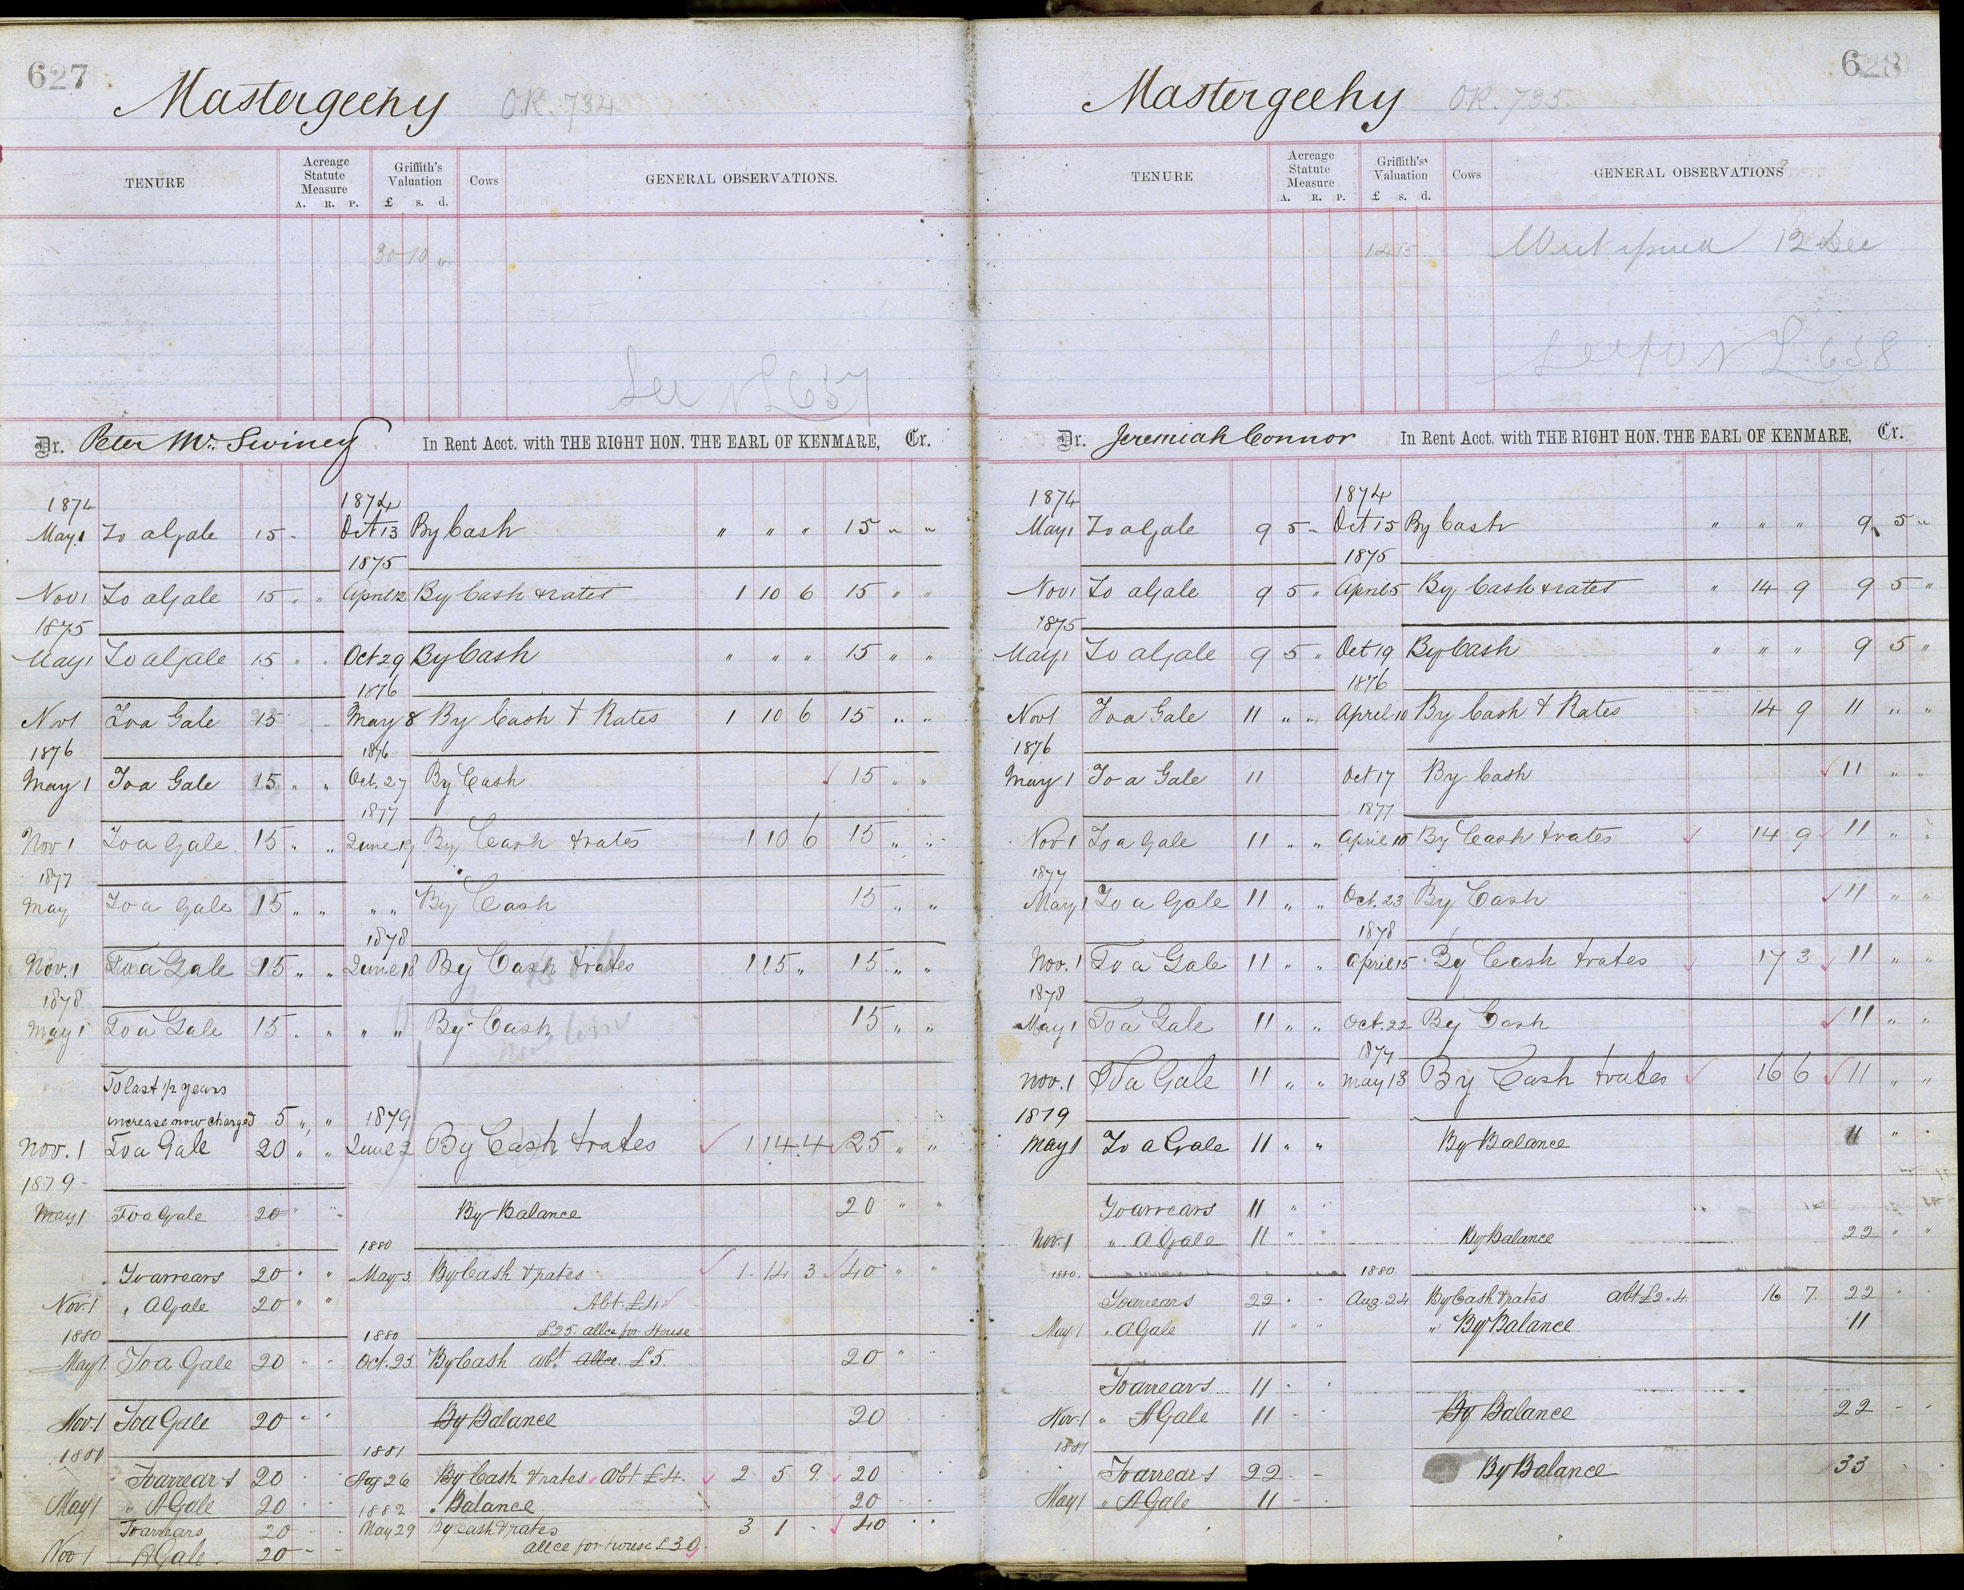 627
Mastergeehy O.R. 734
TENURE
Acreage Statute Measure
A. R. P.
Griffith's Valuation
£ s. d.
Cows
GENERAL OBSERVATIONS.
30 10 "
See N L 657
Dr. Peter Mc Swiney In Rent Acct. with THE RIGHT HON. THE EARL OF KENMARE, Cr.
1874 1874
May 1 To a Gale 15 " Oct 13 By Cash " " " 15 " "
1875
Nov 1 To a Gale 15 " " April 12 By Cash & rates 1 10 6 15 " "
1875
May 1 To a Gale 15 " " Oct 29 By Cash " " " 15 " "
1876
Nov 1 To a Gale 15 May 8 By Cash & Rates 1 10 6 15 " "
1876 1876
May 1 To a Gale 15 " " Oct. 27 By Cash 15 " "
1877
Nov 1 To a Gale 15 " " June 19 By Cash & rates 1 10 6 15 " "
1877
May To a Gale 15 " " " " By Cash 15 " "
1878
Nov. 1 To a Gale 15 " " June 18 By Cash & rates 1 15 " 15 " "
1878
May 1 To a Gale 15 " " " " By Cash 15 " "
To last 1/2 years
increase now charged 5 " " 1879
Nov. 1 To a Gale 20 " " June 2 By Cash & rates 1 14 4 25 " "
1879
May 1 To a Gale 20 " " By Balance 20 " "
1880
To arrears 20 " " May 3 By Cash & rates 1 14 3 40 " "
Nov. 1 " A Gale 20 " " Abt £4
1880 1880 £25. allce for House
May 1 To a Gale 20 " " Oct. 25 By Cash abt. Allce. £5. 20 " "
Nov. 1 To a Gale 20 " " By Balance 20
1881 1881
To arrears 20 Aug 26 By Cash & rates Abt £4. 2 5 9 20
May 1 " A Gale 20 1882 " Balance 20
To arrears 20 May 29 By Cash & rates 3 1 " 40
Nov 1 A Gale 20 allce for house £30
628
Mastergeehy O.R. 735
TENURE
Acreage Statute Measure
A. R. P.
Griffith's Valuation
£ s. d.
Cows
GENERAL OBSERVATIONS
14 15 12 Dec
N L. 658
Dr. Jeremiah Connor In Rent Acct. with THE RIGHT HON. THE EARL OF KENMARE, Cr.
1874 1874
May 1 To a Gale 9 5 " Oct 15 By Cash " " " 9 5 "
1875
Nov 1 To a Gale 9 5 " April 5 By Cash & rates " 14 9 9 5 "
1875
May 1 To a Gale 9 5 " Oct 19 By Cash " " " 9 5 "
1876
Nov 1 To a Gale 11 " " April 10 By Cash & Rates 14 9 11 " "
1876
May 1 To a Gale 11 Oct 17 By Cash 11 " "
1877
Nov 1 To a Gale 11 " " April 10 By Cash & rates 14 9 11 " "
1877
May 1 To a Gale 11 " " Oct. 23 By Cash 11 " "
1878
Nov. 1 To a Gale 11 " " April 15 By Cash & rates 17 3 11 " "
1878
May 1 To a Gale 11 " " Oct. 22 By Cash 11 " "
1879
Nov. 1 To a Gale 11 " " May 13 By Cash & rates 16 6 11 " "
1879
May 1 To a Gale 11 " " By Balance 11 "
To arrears 11 " "
Nov. 1 " A Gale 11 " " By Balance 22 " "
1880. 1880
To arrears 22 " " Aug. 24 By Cash & rates abt £2 " 4 16 7 22
May 1 " A Gale 11 " " " By Balance 11
To arrears 11 "
Nov. 1 " A Gale 11 By Balance 22
1881
To arrears 22 By Balance 33
May 1 " A Gale 11